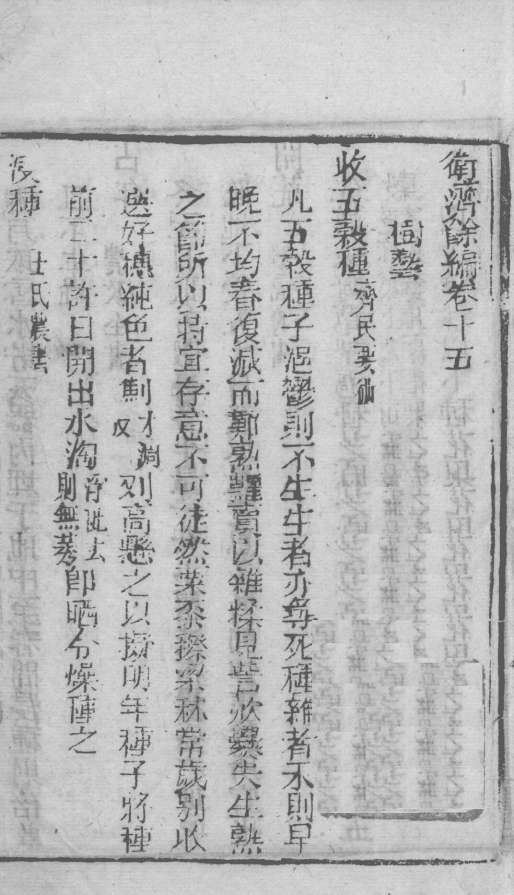 衛濟餘編卷十五
樹藝
收五穀種 齊民要術
凡五穀種子浥鬱則不生生者亦每死種雜者禾則早
晚不均舂復減而難熟糶賣以雜糅見訾炊爨失生熟
之節所以特宜存意不可徒然粟黍穄粱秫常歲別收
選好穗純色者劁才凋反刈高懸之以擬明年種子將種
前二十許日開出水淘浮粃去則無莠即晒令燥種之
浸種 杜氏農書